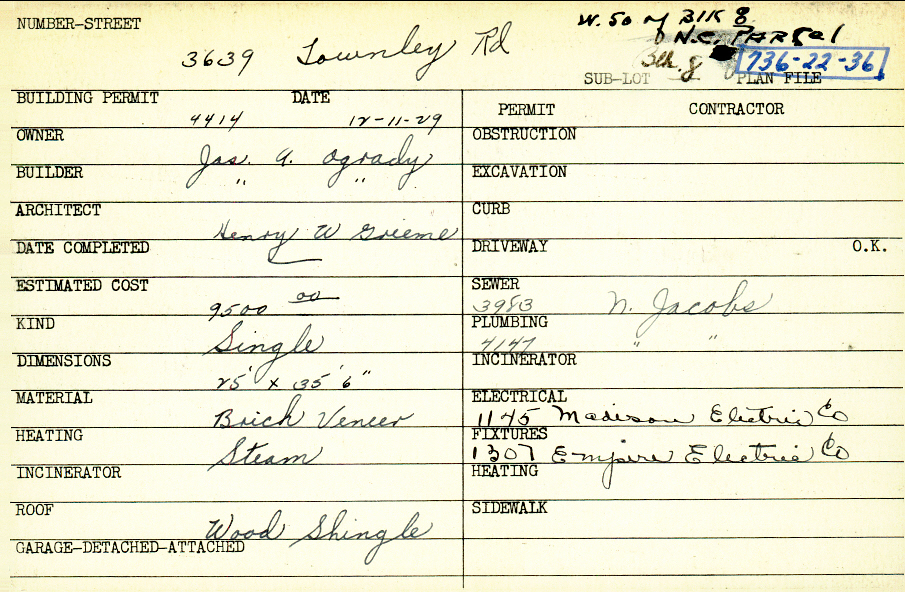 NUMBER-STREET
3639 Townley Rd
W. 50 of Blk 8
N.C. PARCel
Blk. 8
736-22-36
SUB-LOT PLAN FILE
BUILDING PERMIT DATE
4414 12-11-29
OWNER
Jas. A. Ogrady
BUILDER
" "
ARCHITECT
Henry W Grieme
DATE COMPLETED
ESTIMATED COST
9500 00
KIND
Single
DIMENSIONS
25' x 35' 6"
MATERIAL
Brick Veneer
HEATING
Steam
INCINERATOR
ROOF
Wood Shingle
GARAGE-DETACHED-ATTACHED
PERMIT CONTRACTOR
OBSTRUCTION
EXCAVATION
CURB
DRIVEWAY O.K.
SEWER
3983 N. Jacobs
PLUMBING
4147 " "
INCINERATOR
ELECTRICAL
1145 Madison Electric Co
FIXTURES
1307 Empire Electric Co
HEATING
SIDEWALK